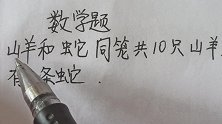 数学题
山羊和蛇同笼共10只山羊
有 条蛇.